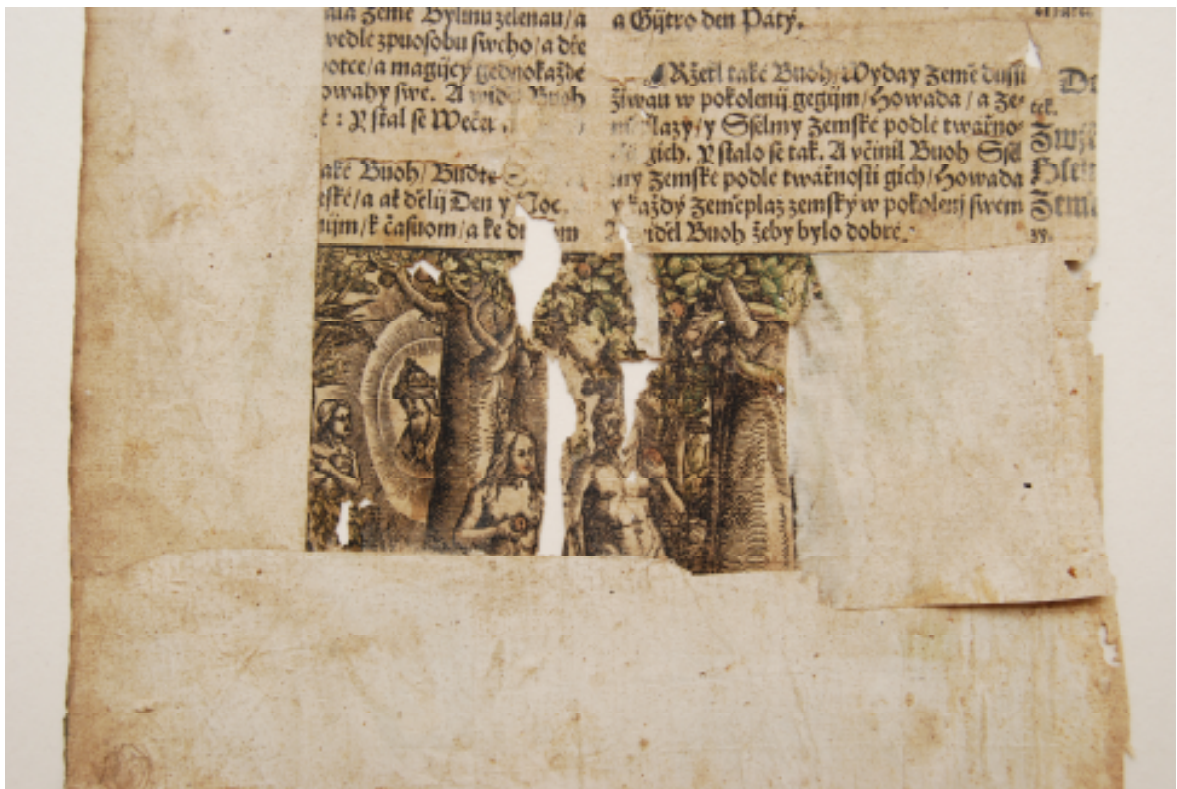 ala Zemē Bylinu zelenau/a
wedlé zpuosobu swého/a dře
owotce/a magijcý gednokaždé
owahy swé. A widěl Buoh
é : Y stal se Wečer
aké Buoh/ Buďte
eské/a ať dělij Den y Noc,
nijm/k časuom/a ke dnuom
a Gijtro den Pátý.
Ržekl také Buoh/Wyday Země dussi
žiwau w pokolenij gegijm/Howada / a Ze-
měplazy/y Sselmy Zemské podlé twařno-
gich. Y stalo se tak. A včinil Buoh Ssel
my Zemské podlé twařnosti gich/Howada
y každý Zeměplaz zemský w pokolenj swém
widěl Buoh žeby bylo dobré.
tek.